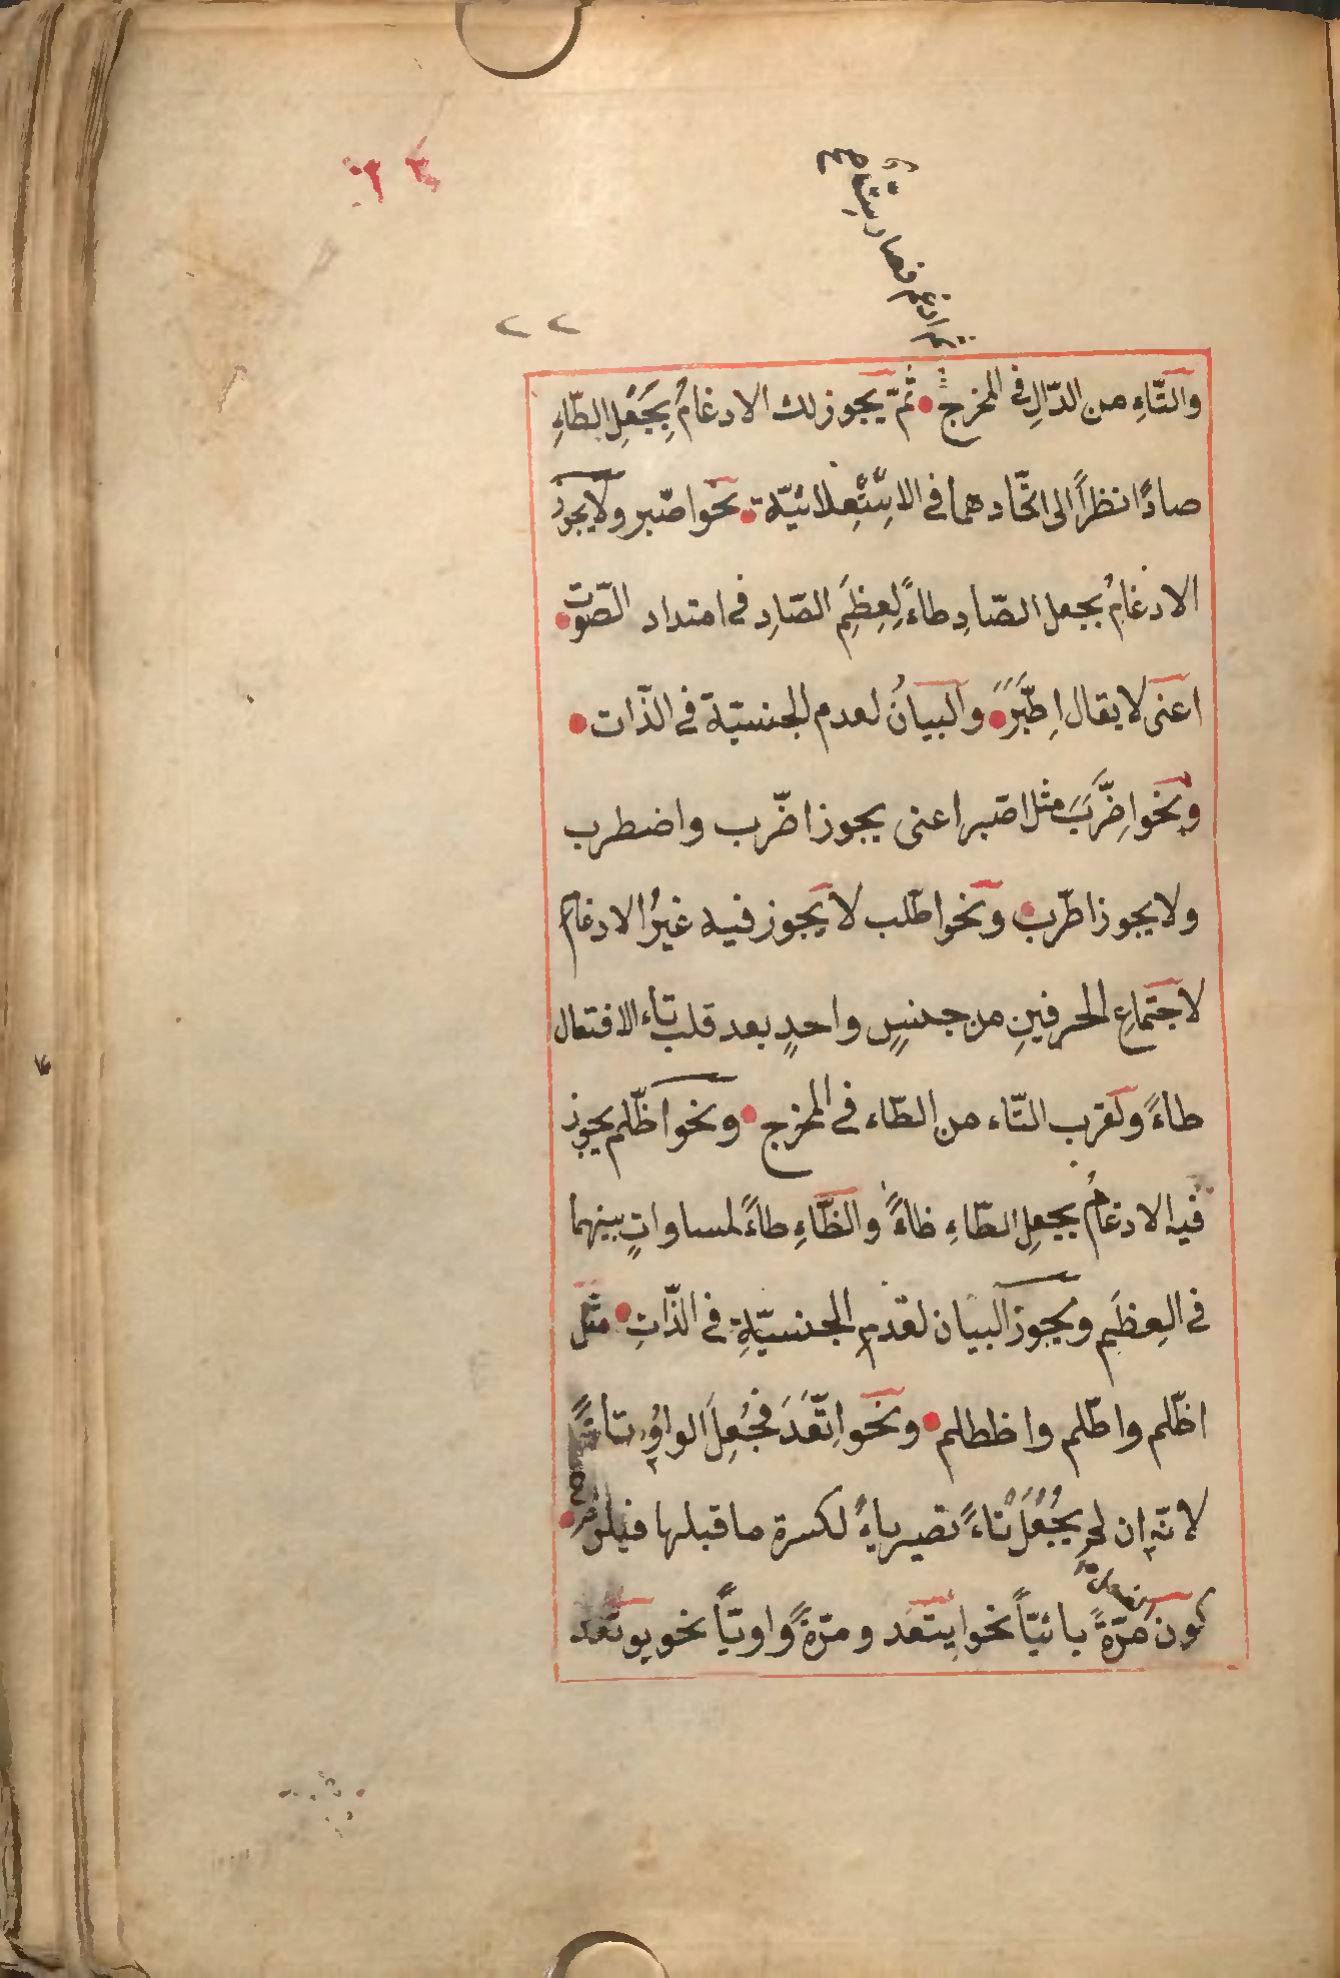 ثم ادغم فصار ستّا ع
٢٢
والتّاءِ من الدّالِ في المخرج ثُمّ يجوز لك الادغامُ بِجَعْلِ الطّاءِ
صادًا نظراً الى اتّحادهما في الاستعلائيّة نحو اصّبر ولا يجوز
الادغامُ بجعل الصّادِ طاءً لِعِظَمِ الصّادِ في امتداد الصّوت
اعنى لا يقال اِطَّبَرَ والبيانُ لعدم الجنسيّة في الذّات
ونحو اِضَّرَبَ مثل اصّبر اعنى يجوز اضّرب واضطرب
ولا يجوز اطّرب ونحو اطّلب لا يجوز فيه غيرُ الادغام
لاجتماعِ الحرفينِ من جنسٍ واحدٍ بعد قلب تاء الافتعال
طاءً ولقرب التّاء من الطّاء في المخرج ونحو اظّلم يجوز
فيه الادغامُ بجعلِ الطّاءِ ظاءً والظّاءِ طاءً لمساواتٍ بينهما
في العِظَمِ ويجوز البيان لعدم الجنسيّةِ في الذّاتِ مثل
اظّلم واطّلم واظطلم ونحو اِتَّعَدَ فجُعِلَ الواوُ تاءً
لانّه ان لم يُجْعَلْ تاءً تصير ياءً لكسرة ما قبلها فيلزم
كون مرّةً يائيّاً نحو ايتعد ومرّةً واويّاً نحو يوتعد